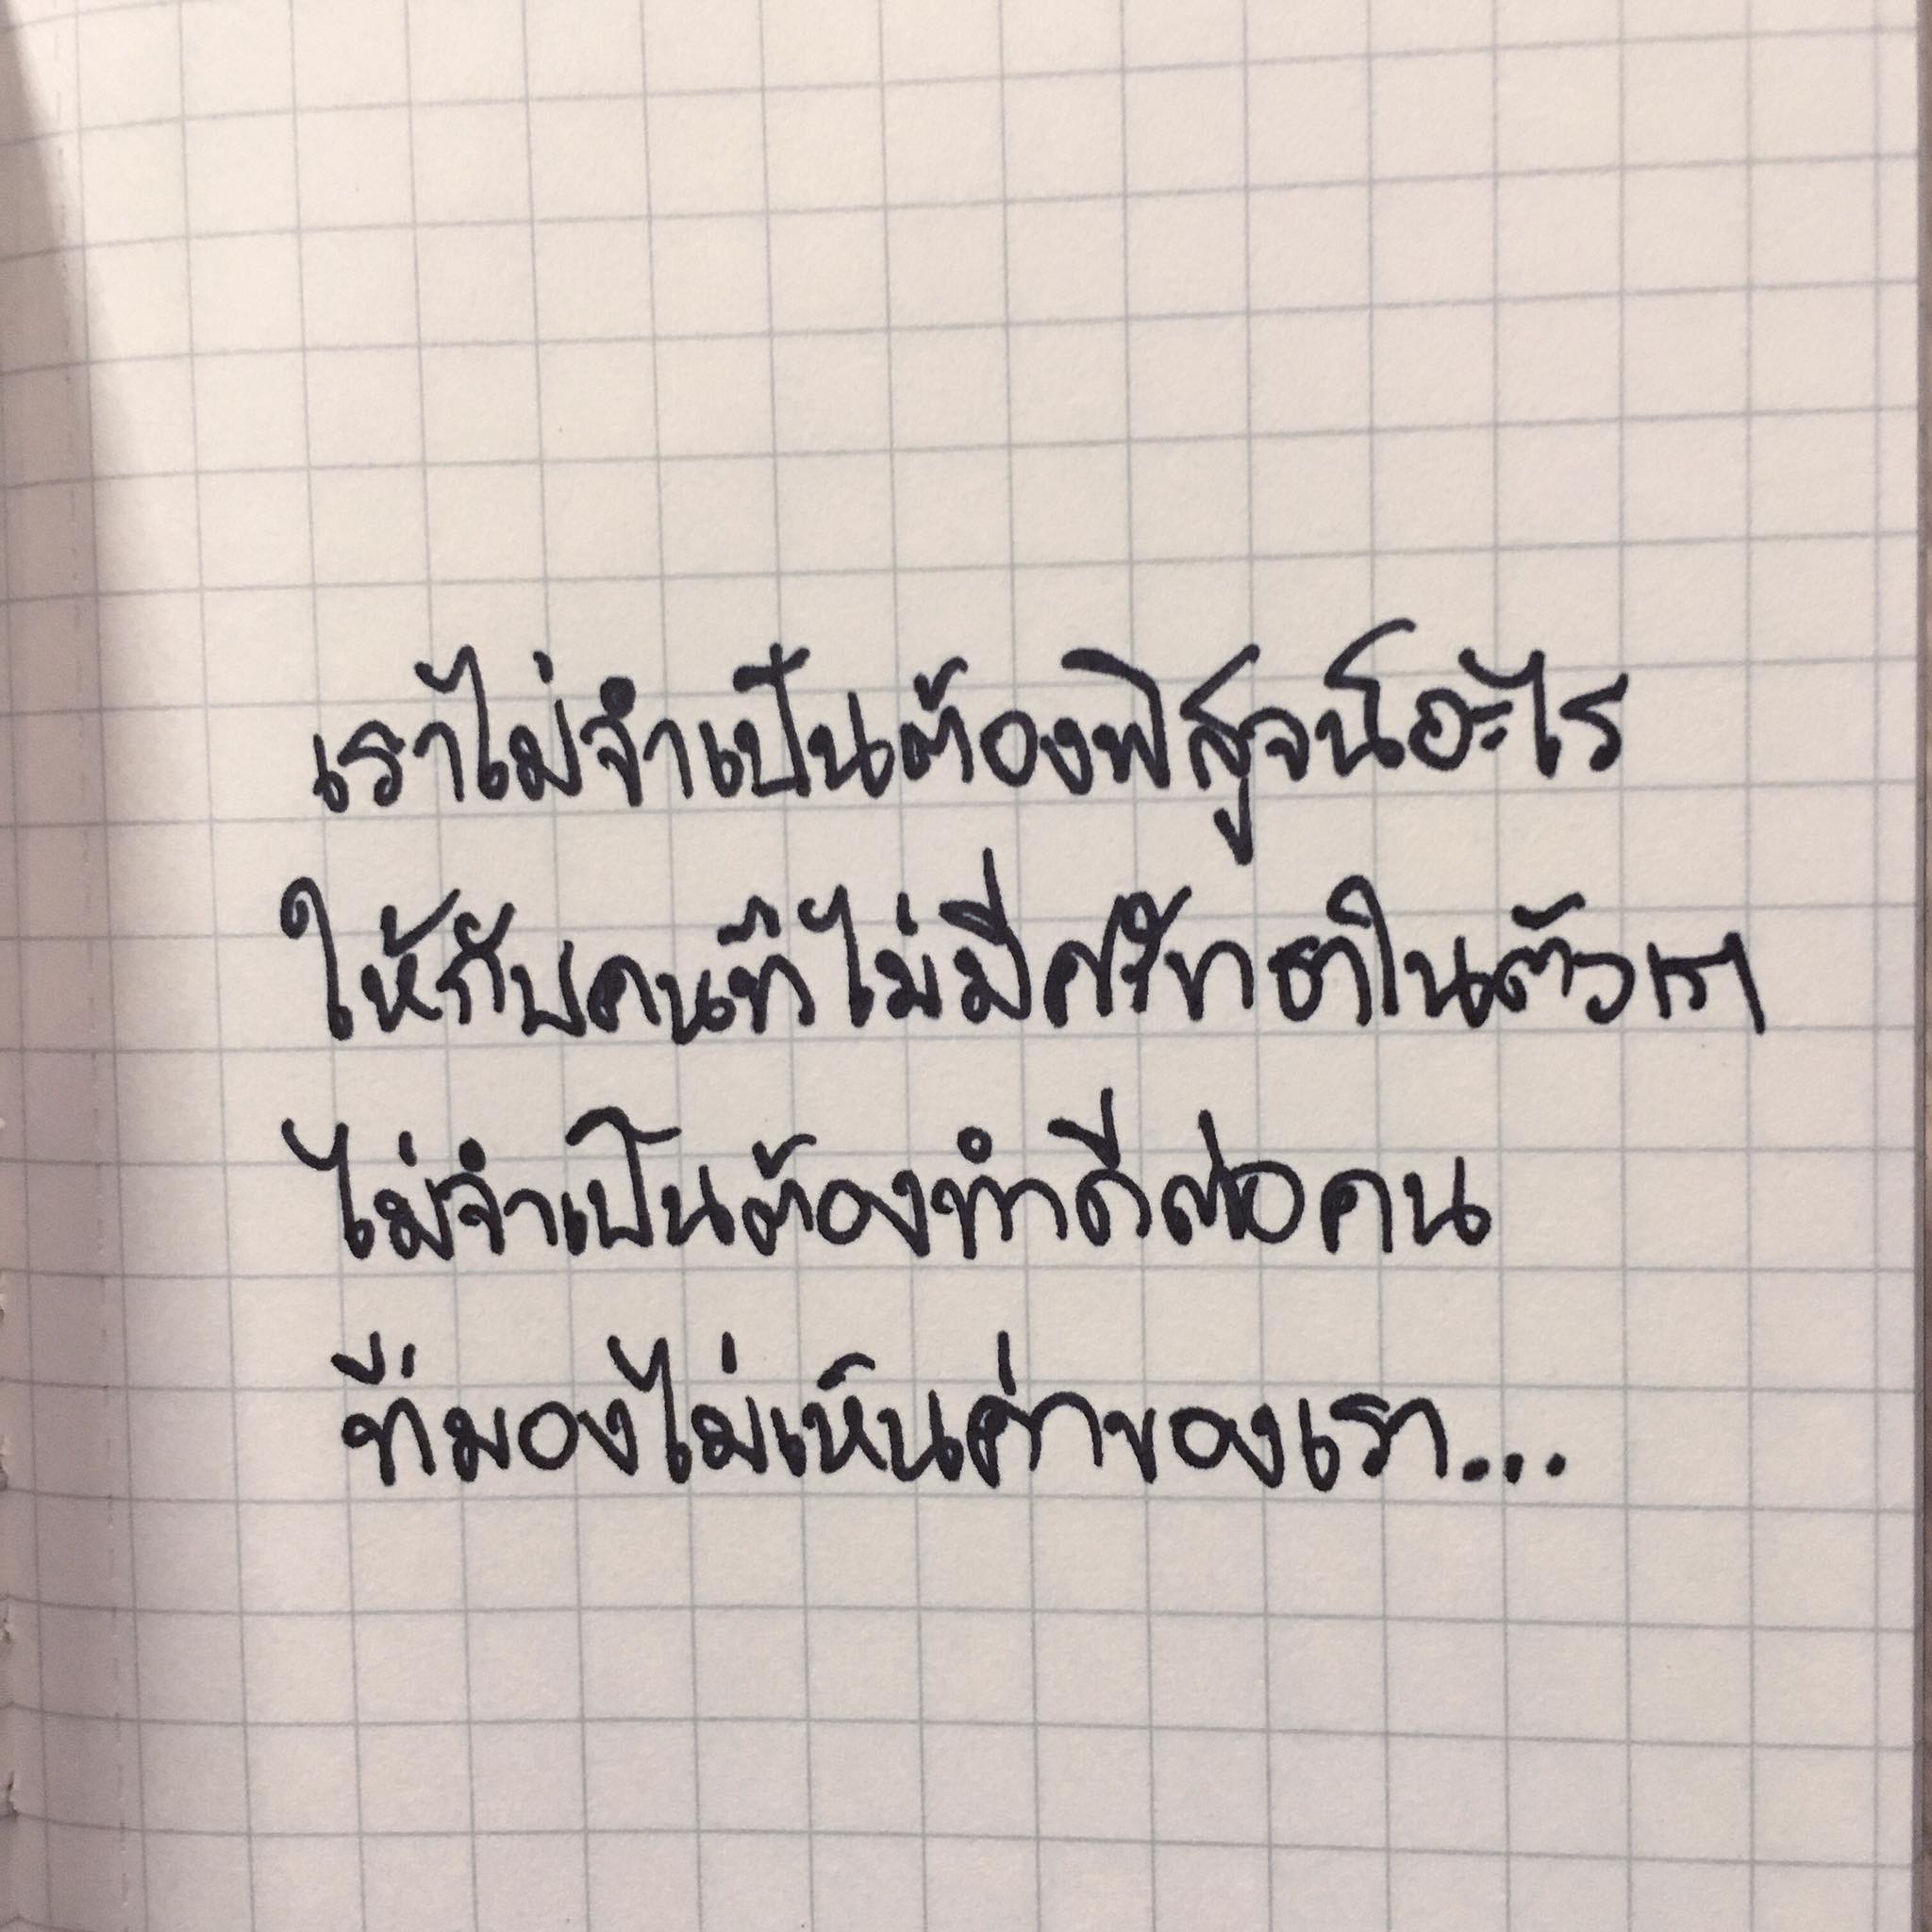 เราไม่จำเป็นต้องพิสูจน์อะไร
ให้กับคนที่ไม่มีศรัทธาในตัวเรา
ไม่จำเป็นต้องทำดีต่อคน
ที่มองไม่เห็นค่าของเรา...